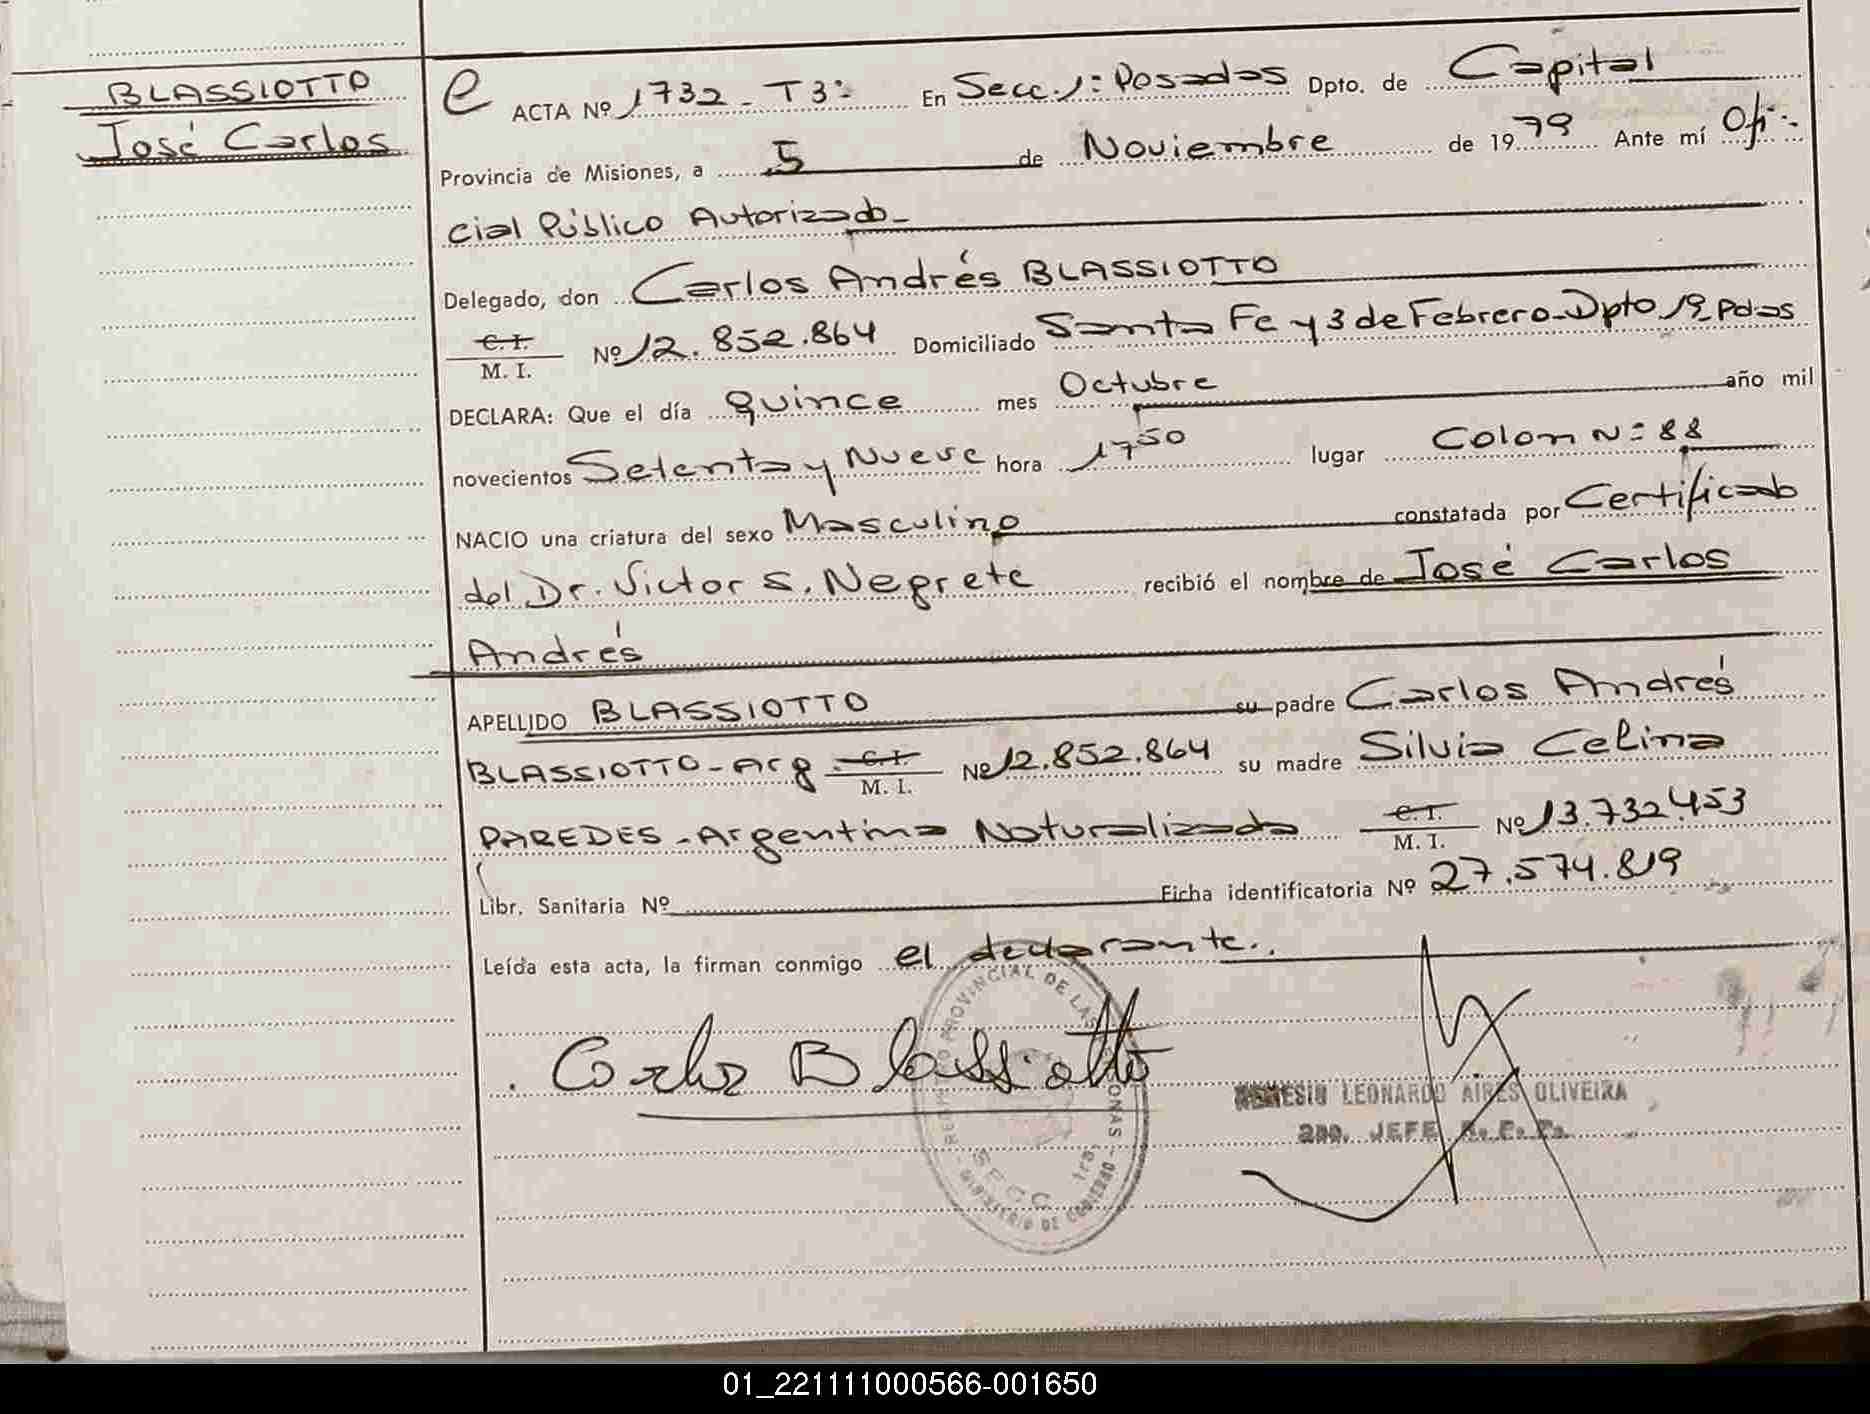 BLASSIOTTO
José Carlos
e ACTA Nº 1732 - T3º En Secc. 1º Posadas Dpto. de Capital
Provincia de Misiones, a 5 de Noviembre de 1979 Ante mí Ofi-
cial Público Autorizado -
Delegado, don Carlos Andrés BLASSIOTTO
C. I. / M. I. Nº 12.852.864 Domiciliado Santa Fe y 3 de Febrero - Dpto 19 Pdas
DECLARA: Que el día quince mes Octubre año mil
novecientos Setenta y Nueve hora 17 50 lugar Colon Nº 88
NACIO una criatura del sexo Masculino constatada por Certificado
del Dr. Victor S. Negrete recibió el nombre de José Carlos
Andrés
APELLIDO BLASSIOTTO su padre Carlos Andrés
BLASSIOTTO - Arg C. I. / M. I. Nº 12.852.864 su madre Silvia Celina
PAREDES - Argentina Naturalizada C. I. / M. I. Nº 13.732.453
Libr. Sanitaria Nº Ficha identificatoria Nº 27.574.819
Leída esta acta, la firman conmigo el declarante.
Carlos Blassiotto
REGISTRO PROVINCIAL DE LAS PERSONAS
MINISTERIO DE GOBIERNO
SECC. 1ra.
NEMESIO LEONARDO AIRES OLIVEIRA
2do. JEFE R. P. P.
01_221111000566-001650